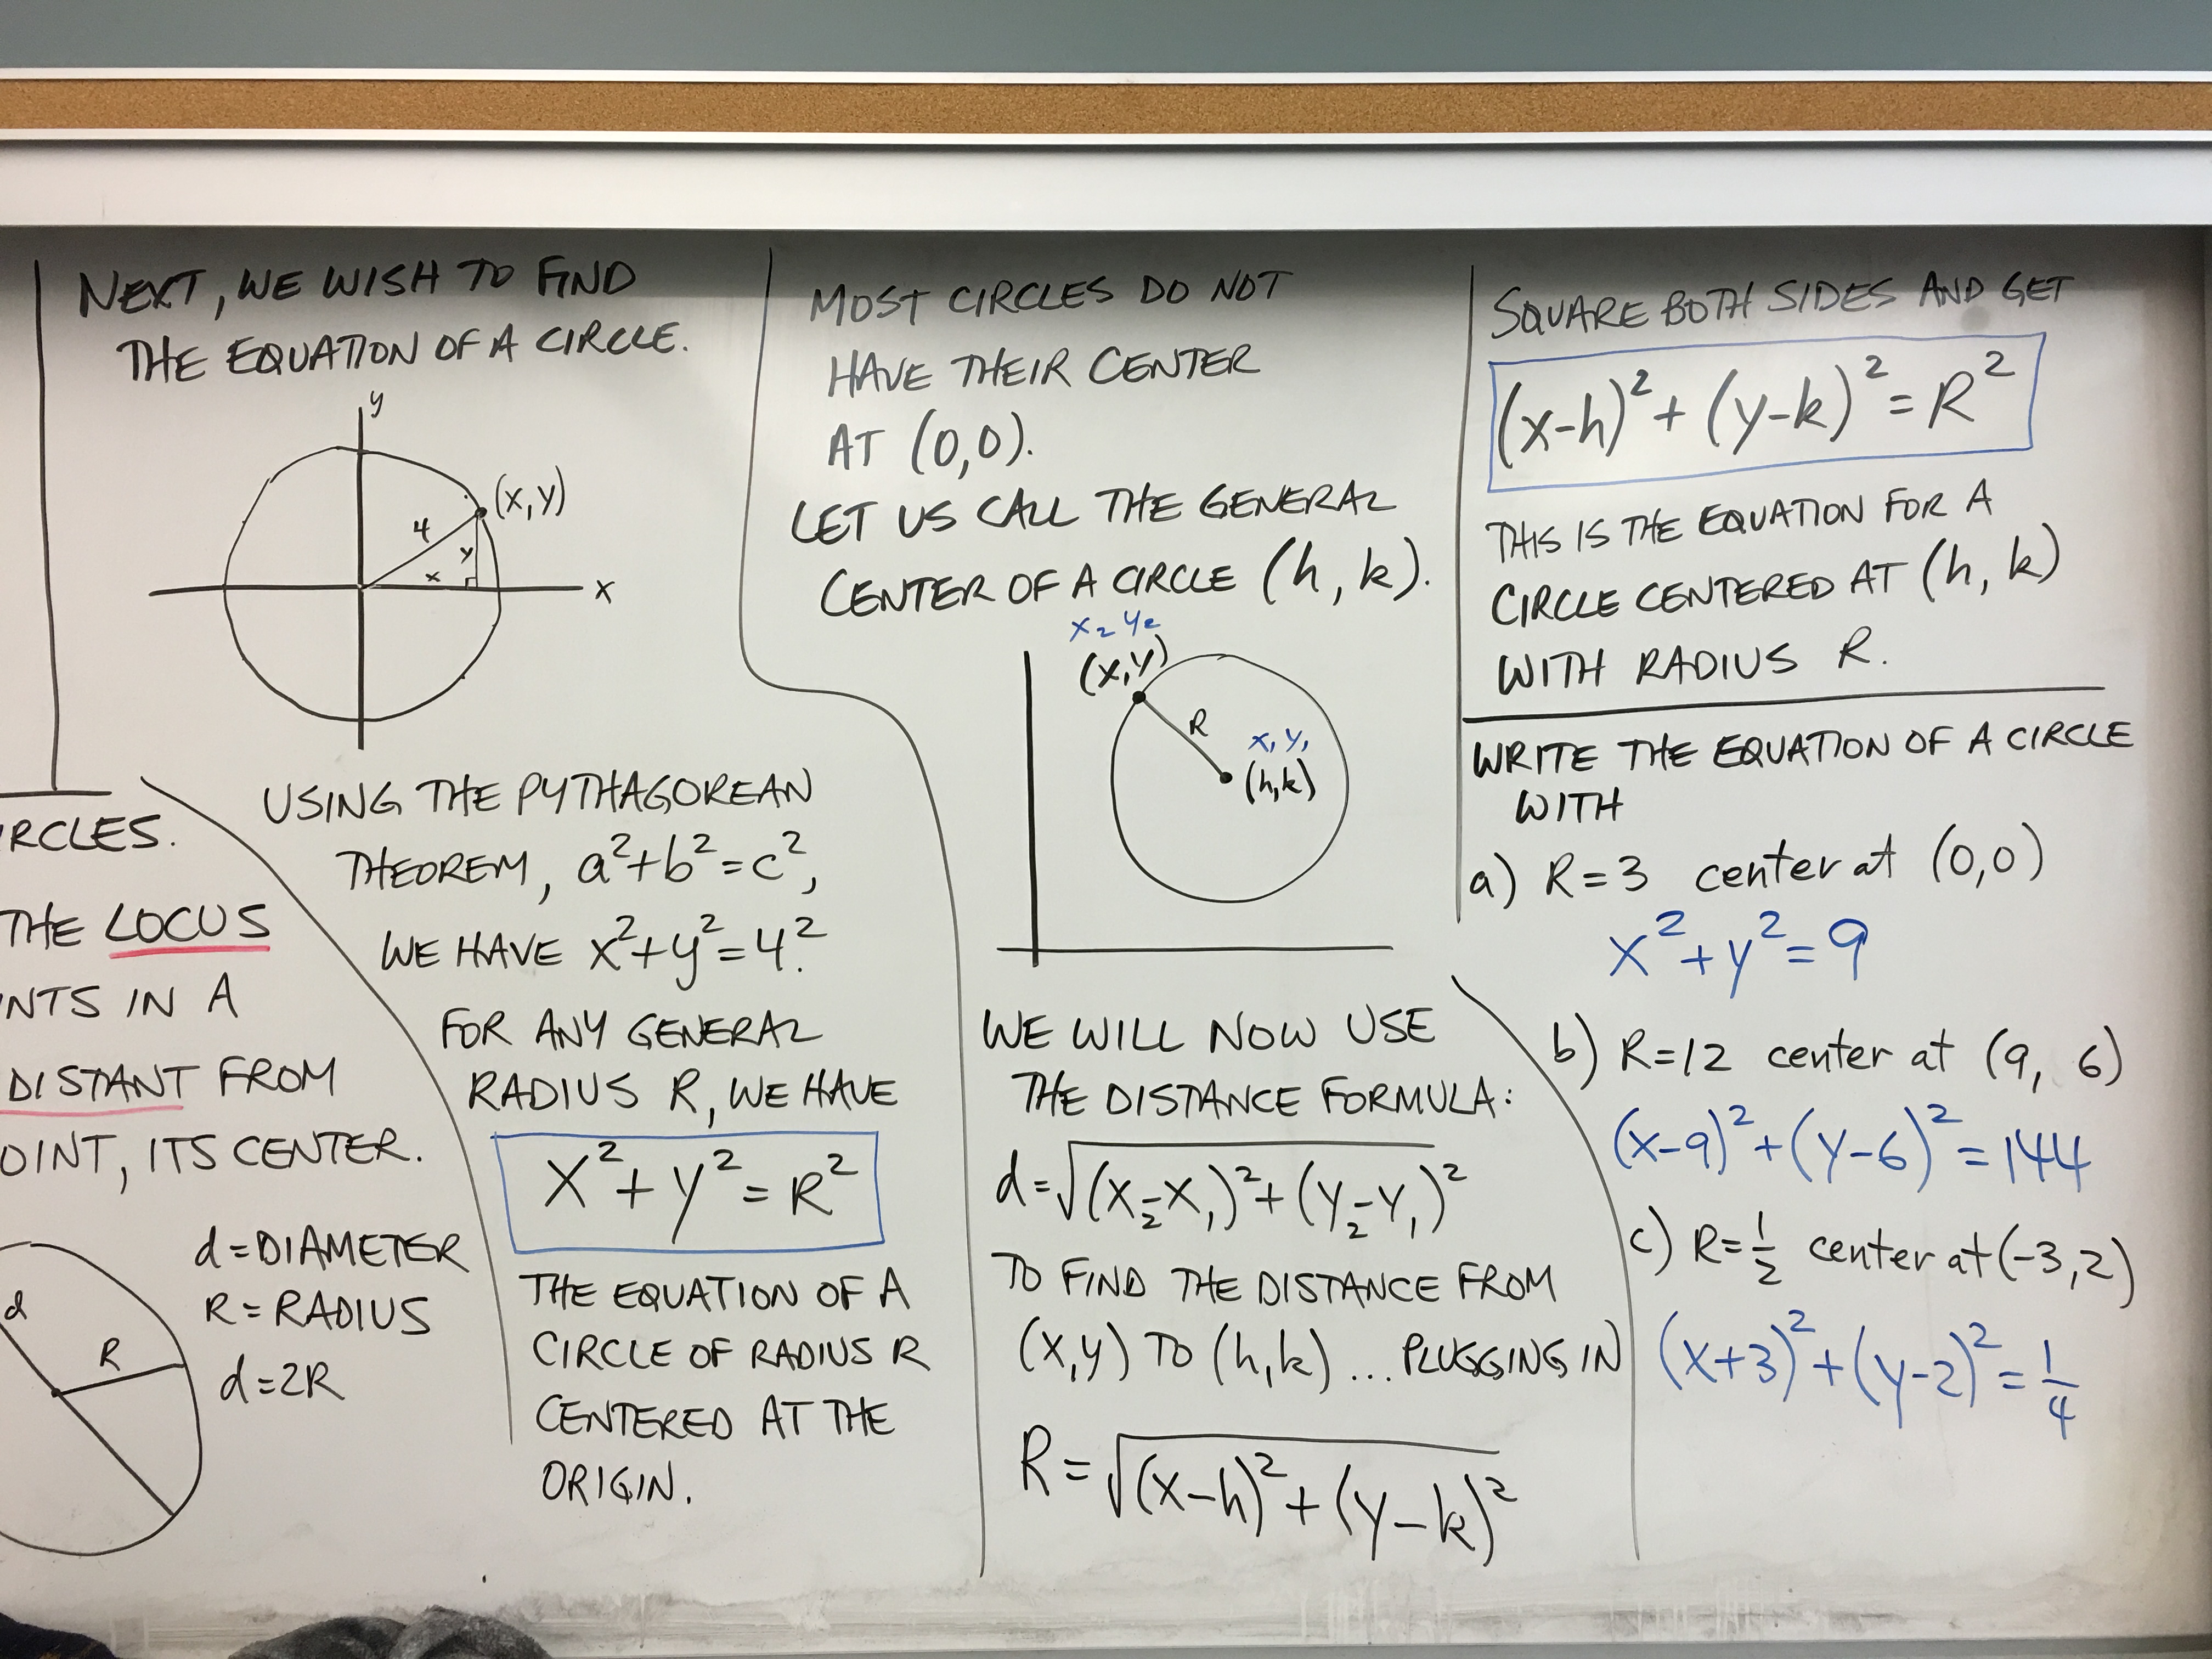 NEXT, WE WISH TO FIND
THE EQUATION OF A CIRCLE.
y
(x,y)
4
y
x
x
USING THE PYTHAGOREAN
THEOREM, a²+b²=c²,
WE HAVE x²+y²=4².
FOR ANY GENERAL
RADIUS R, WE HAVE
x²+y²=R²
THE EQUATION OF A
CIRCLE OF RADIUS R
CENTERED AT THE
ORIGIN.
RCLES.
THE LOCUS
NTS IN A
DISTANT FROM
OINT, ITS CENTER.
d=DIAMETER
R=RADIUS
d=2R
d
R
MOST CIRCLES DO NOT
HAVE THEIR CENTER
AT (0,0).
LET US CALL THE GENERAL
CENTER OF A CIRCLE (h,k).
x₂ y₂
(x,y)
R
x₁ y₁
(h,k)
WE WILL NOW USE
THE DISTANCE FORMULA:
d=√(x₂-x₁)²+(y₂-y₁)²
TO FIND THE DISTANCE FROM
(x,y) TO (h,k)...PLUGGING IN
R=√(x-h)²+(y-k)²
SQUARE BOTH SIDES AND GET
(x-h)²+(y-k)²=R²
THIS IS THE EQUATION FOR A
CIRCLE CENTERED AT (h,k)
WITH RADIUS R.
WRITE THE EQUATION OF A CIRCLE
WITH
a) R=3 center at (0,0)
x²+y²=9
b) R=12 center at (9, 6)
(x-9)²+(y-6)²=144
c) R=1/2 center at (-3,2)
(x+3)²+(y-2)²=1/4